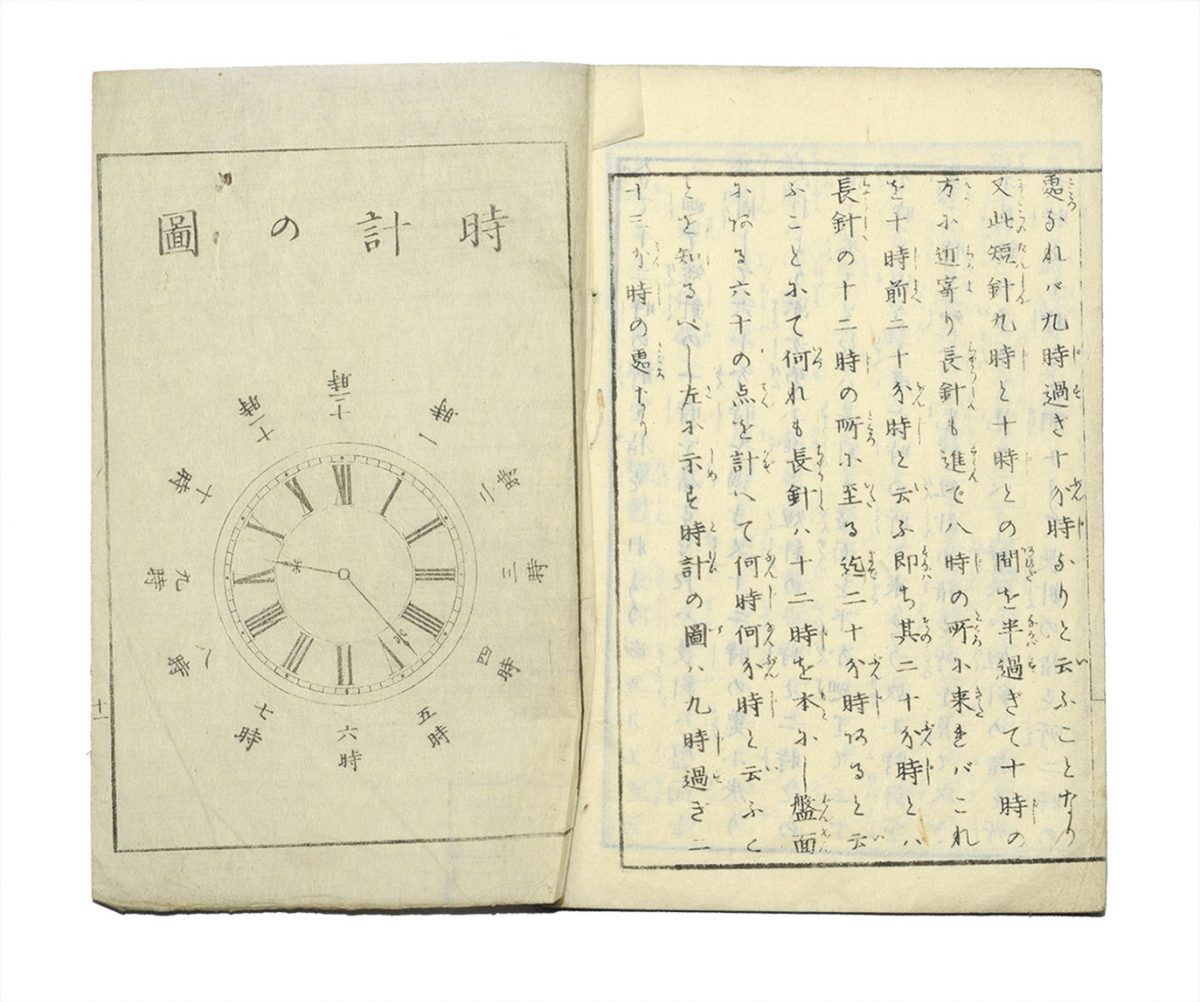 處なれバ九時過ぎ十分時なりと云ふことなり
又此短針九時と十時との間を半過ぎて十時の
方に近寄り長針も進で八時の所に来ればこれ
を十時前二十分時と云ふ即ち其二十分時とハ
長針の十二時の所に至る迄二十分時あると云
ふことにて何れも長針ハ十二時を本にし盤面
にある六十の点を計へて何時何分時と云ふこ
とを知るべし左に示す時計の圖ハ九時過ぎ二
十二分時の處なり
時計の圖
十二時
一時
二時
三時
四時
五時
六時
七時
八時
九時
十時
十一時
XII
I
II
III
IIII
V
VI
VII
VIII
IX
X
XI
十一